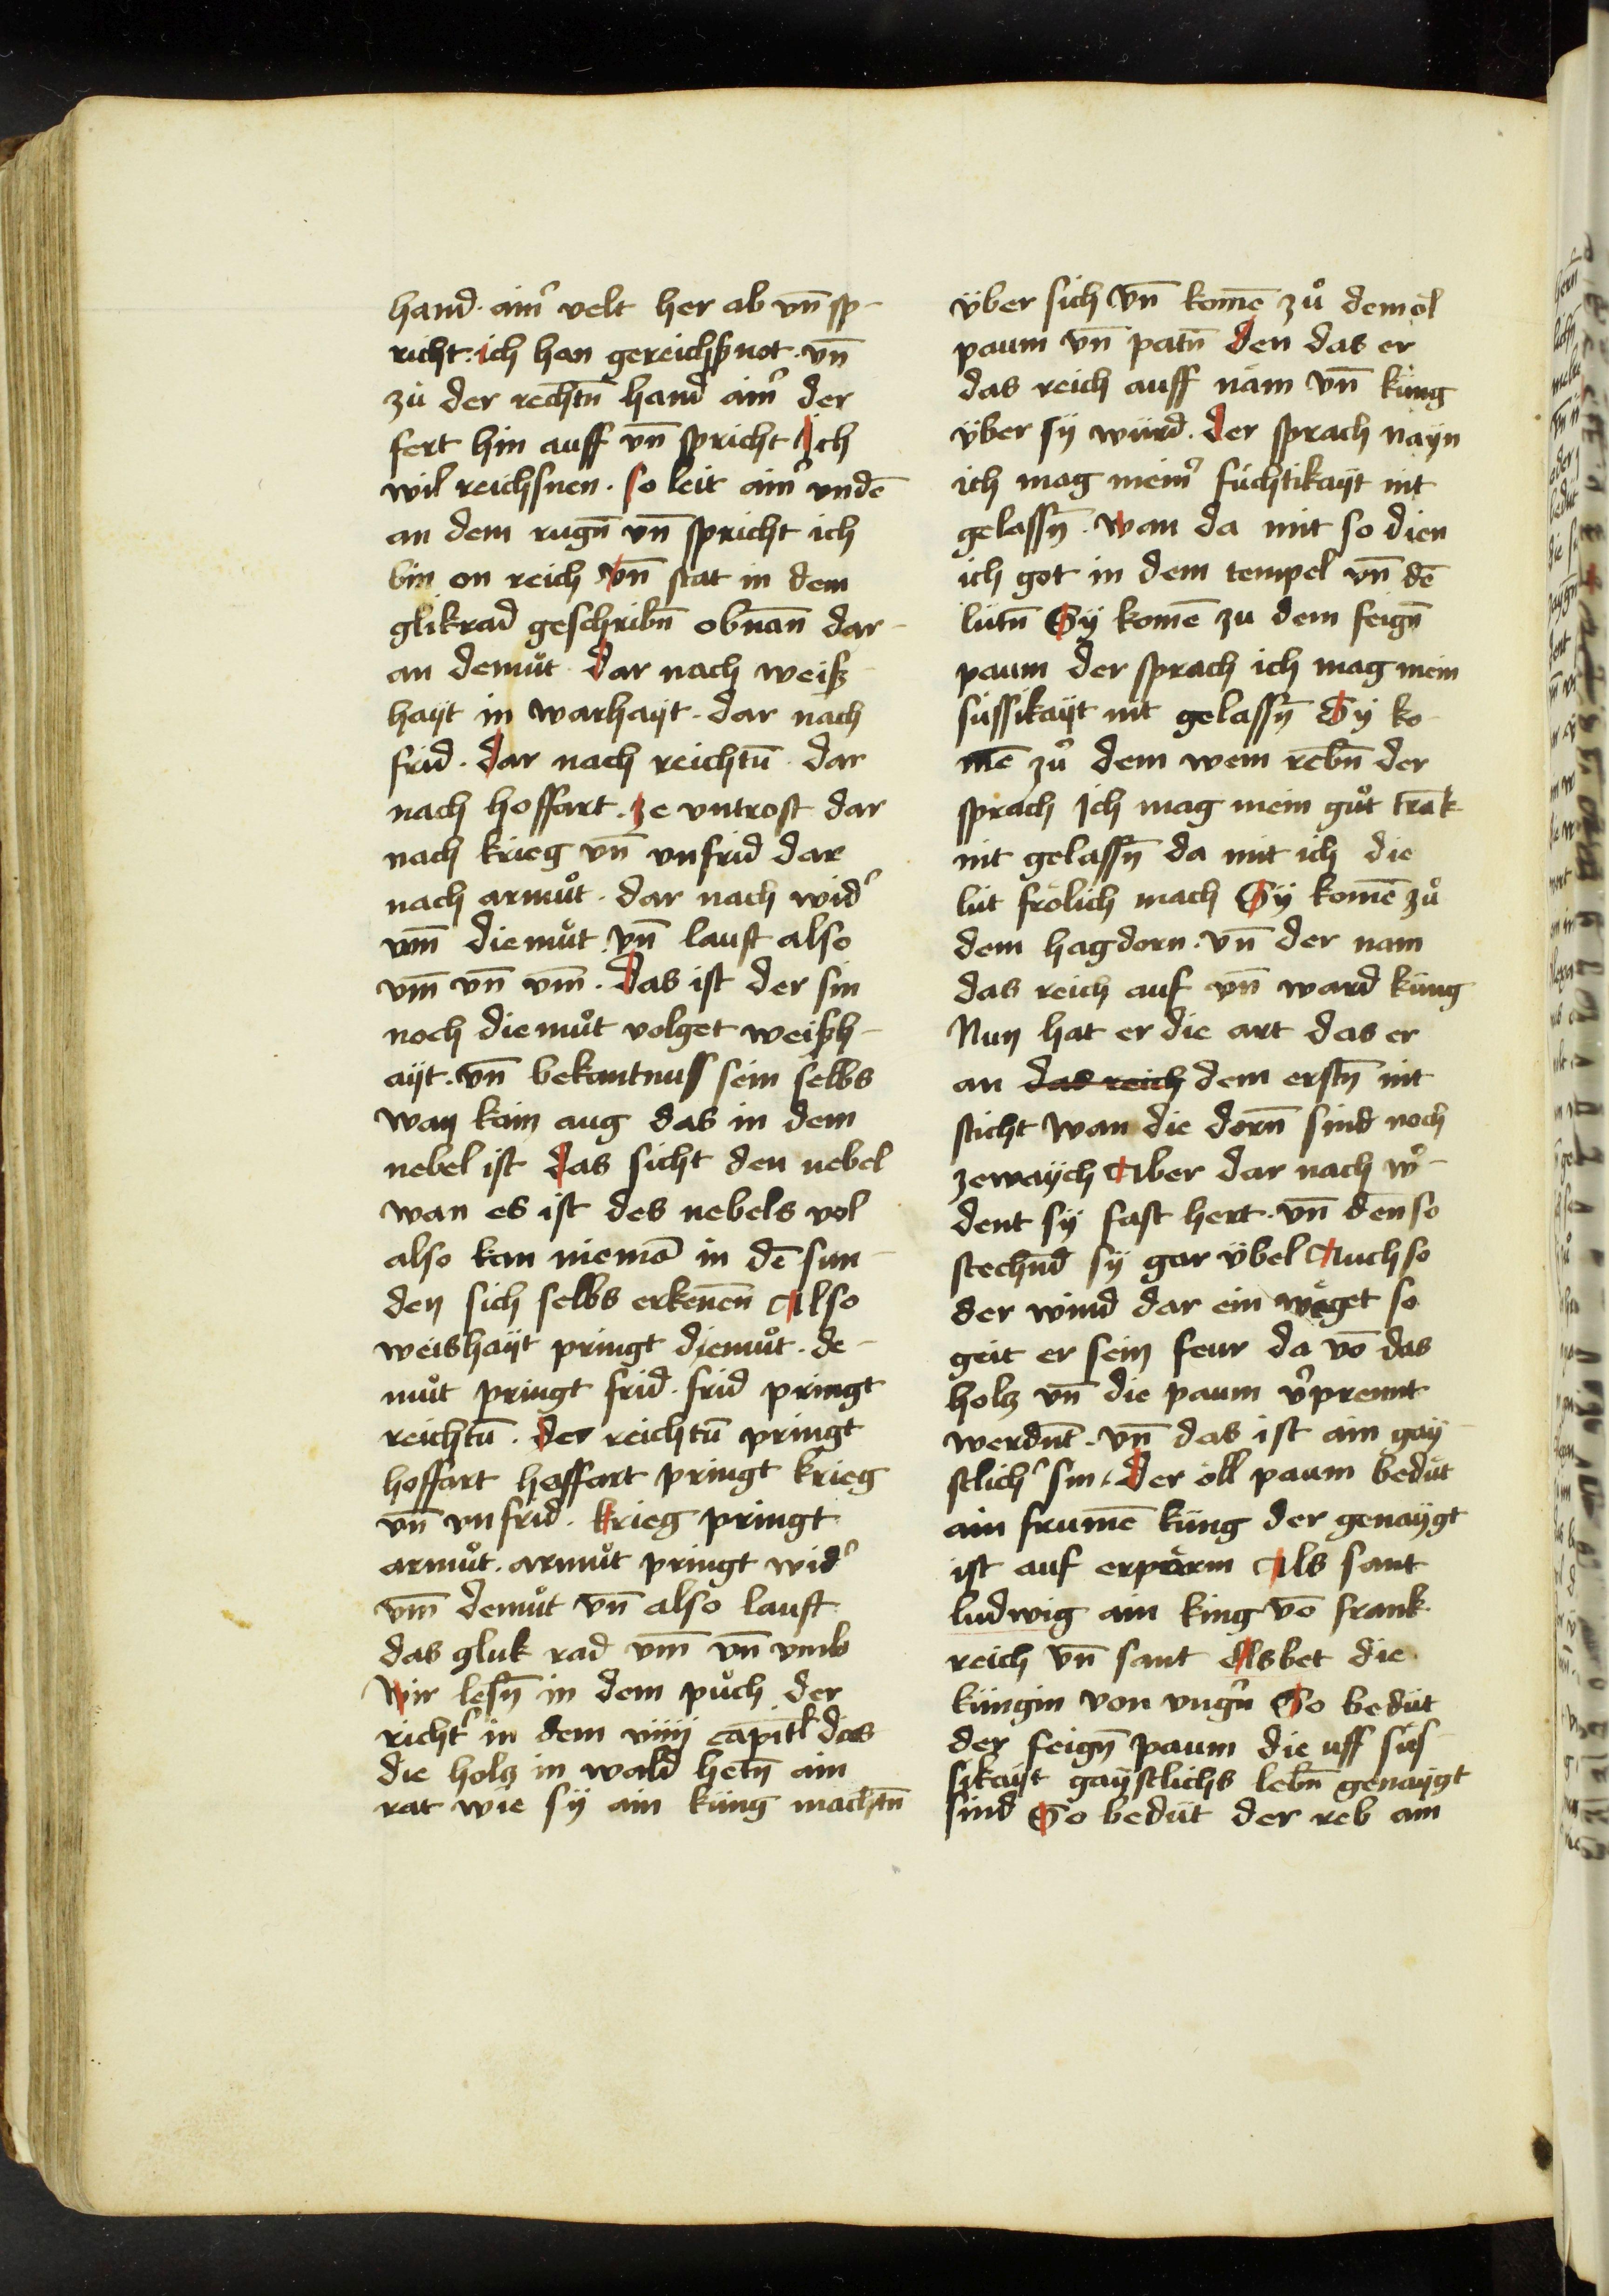 hand · aimˀ velt her ab vn̄ sp-
richt · ich han gereichßnot · vn̄
zů der rechtn̄ hand aimˀ der
fert hin auff vn̄ spricht Ich
wil reichsnen · so leit aimˀ vndē
an dem rugn̄ vn̄ spricht ich
bin on reich vn̄ stat in dem
glikrad geschribn̄ obnan̄ dar-
an demůt · dar nach weiß-
hayt in warhayt · dar nach
frid · dar nach reichtū · dar
nach hoffart · ze vntrost dar
nach krieg vn̄ vnfrid dar
nach armůt · dar nach widˀ
vm̄ diemůt · vn̄ laust also
vm̄ vn̄ vm̄ · das ist der sin
noch diemůt volget weißh-
ayt · vn̄ bekantnuss sein selbs
wan kain aug das in dem
nebel ist das sicht den nebel
wan es ist des nebels vol
also kan niemā in dē sun-
den sich selbs erkenēn Also
weishayt pringt diemůt · de-
můt pringt frid · frid pringt
reichtū · der reichtū pringt
hoffart hoffart pringt krieg
vn̄ vnfrid · krieg pringt
armůt · armůt pringt widˀ
vm̄ demůt vn̄ also laust
das gluk rad vm̄ vn̄ vmb
Wir lesn̄ in dem půch der
richtˀ in dem viiij capitl das
die holz in wald hetn̄ ain
rat wie sy ain küng machtn̄
über sich vn̄ komē zů dem öl
paum vn̄ patn̄ den das er
das reich auff näm vn̄ küng
über sy würd · der sprach nayn
ich mag meimˀ füchtikayt nit
gelassn̄ · wan da mit so dien
ich got in dem tempel vn̄ dē
lütn̄ Sy komē zu dem feign̄
paum der sprach ich mag mein
süssikayt nit gelassn̄ Sy ko-
mē zů dem wein rebn̄ der
sprach Ich mag mein gůt trāk
nit gelassn̄ da mit ich die
lüt frölich mach Sy komē zů
dem hagdorn · vn̄ der nam
das reich auf vn̄ ward küng
Nun hat er die art das er
an das reich dem erstn̄ nit
sticht wan die dorn̄ sind noch
zewaych Aber dar nach wˀ-
dent sy fast hert · vn̄ den so
stechn̄d sy gar übel Auch so
der wind dar ein wäget so
geit er sein feur da vō das
holz vn̄ die paum vˀprennt
werdn̄t · vn̄ das ist ain gay-
stlichˀ sin · Der öll paum bedüt
ain frumē küng der genaygt
ist auf erpärm Als sant
ludwig ain king vō frank-
reich vn̄ sant elsbet die
küngin von vngˀn So bedüt
der feign̄ paum die uff süs-
sikayt gaystlichs lebn̄ genaygt
sind So bedüt der reb ain